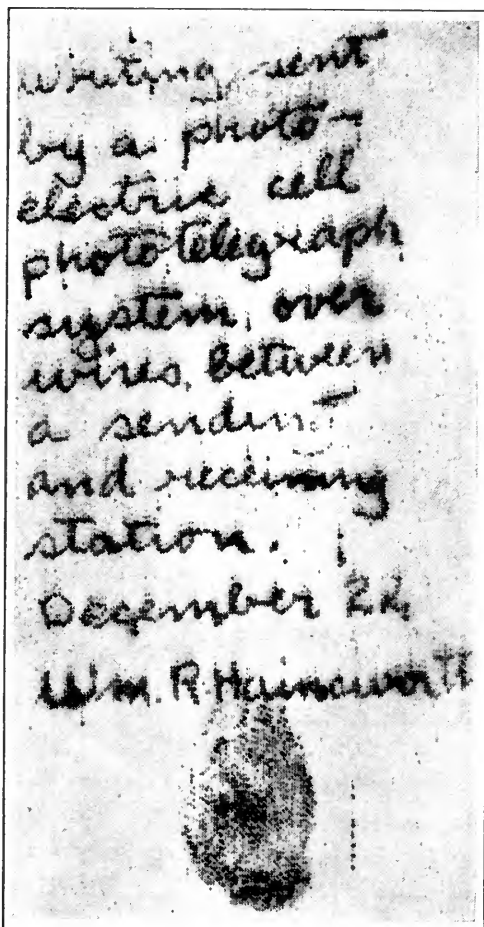 writing sent
by a photo-
electric cell
photo telegraph
system, over
wires, between
a sending
and receiving
station.
December 22,
Wm. R. Hainsworth